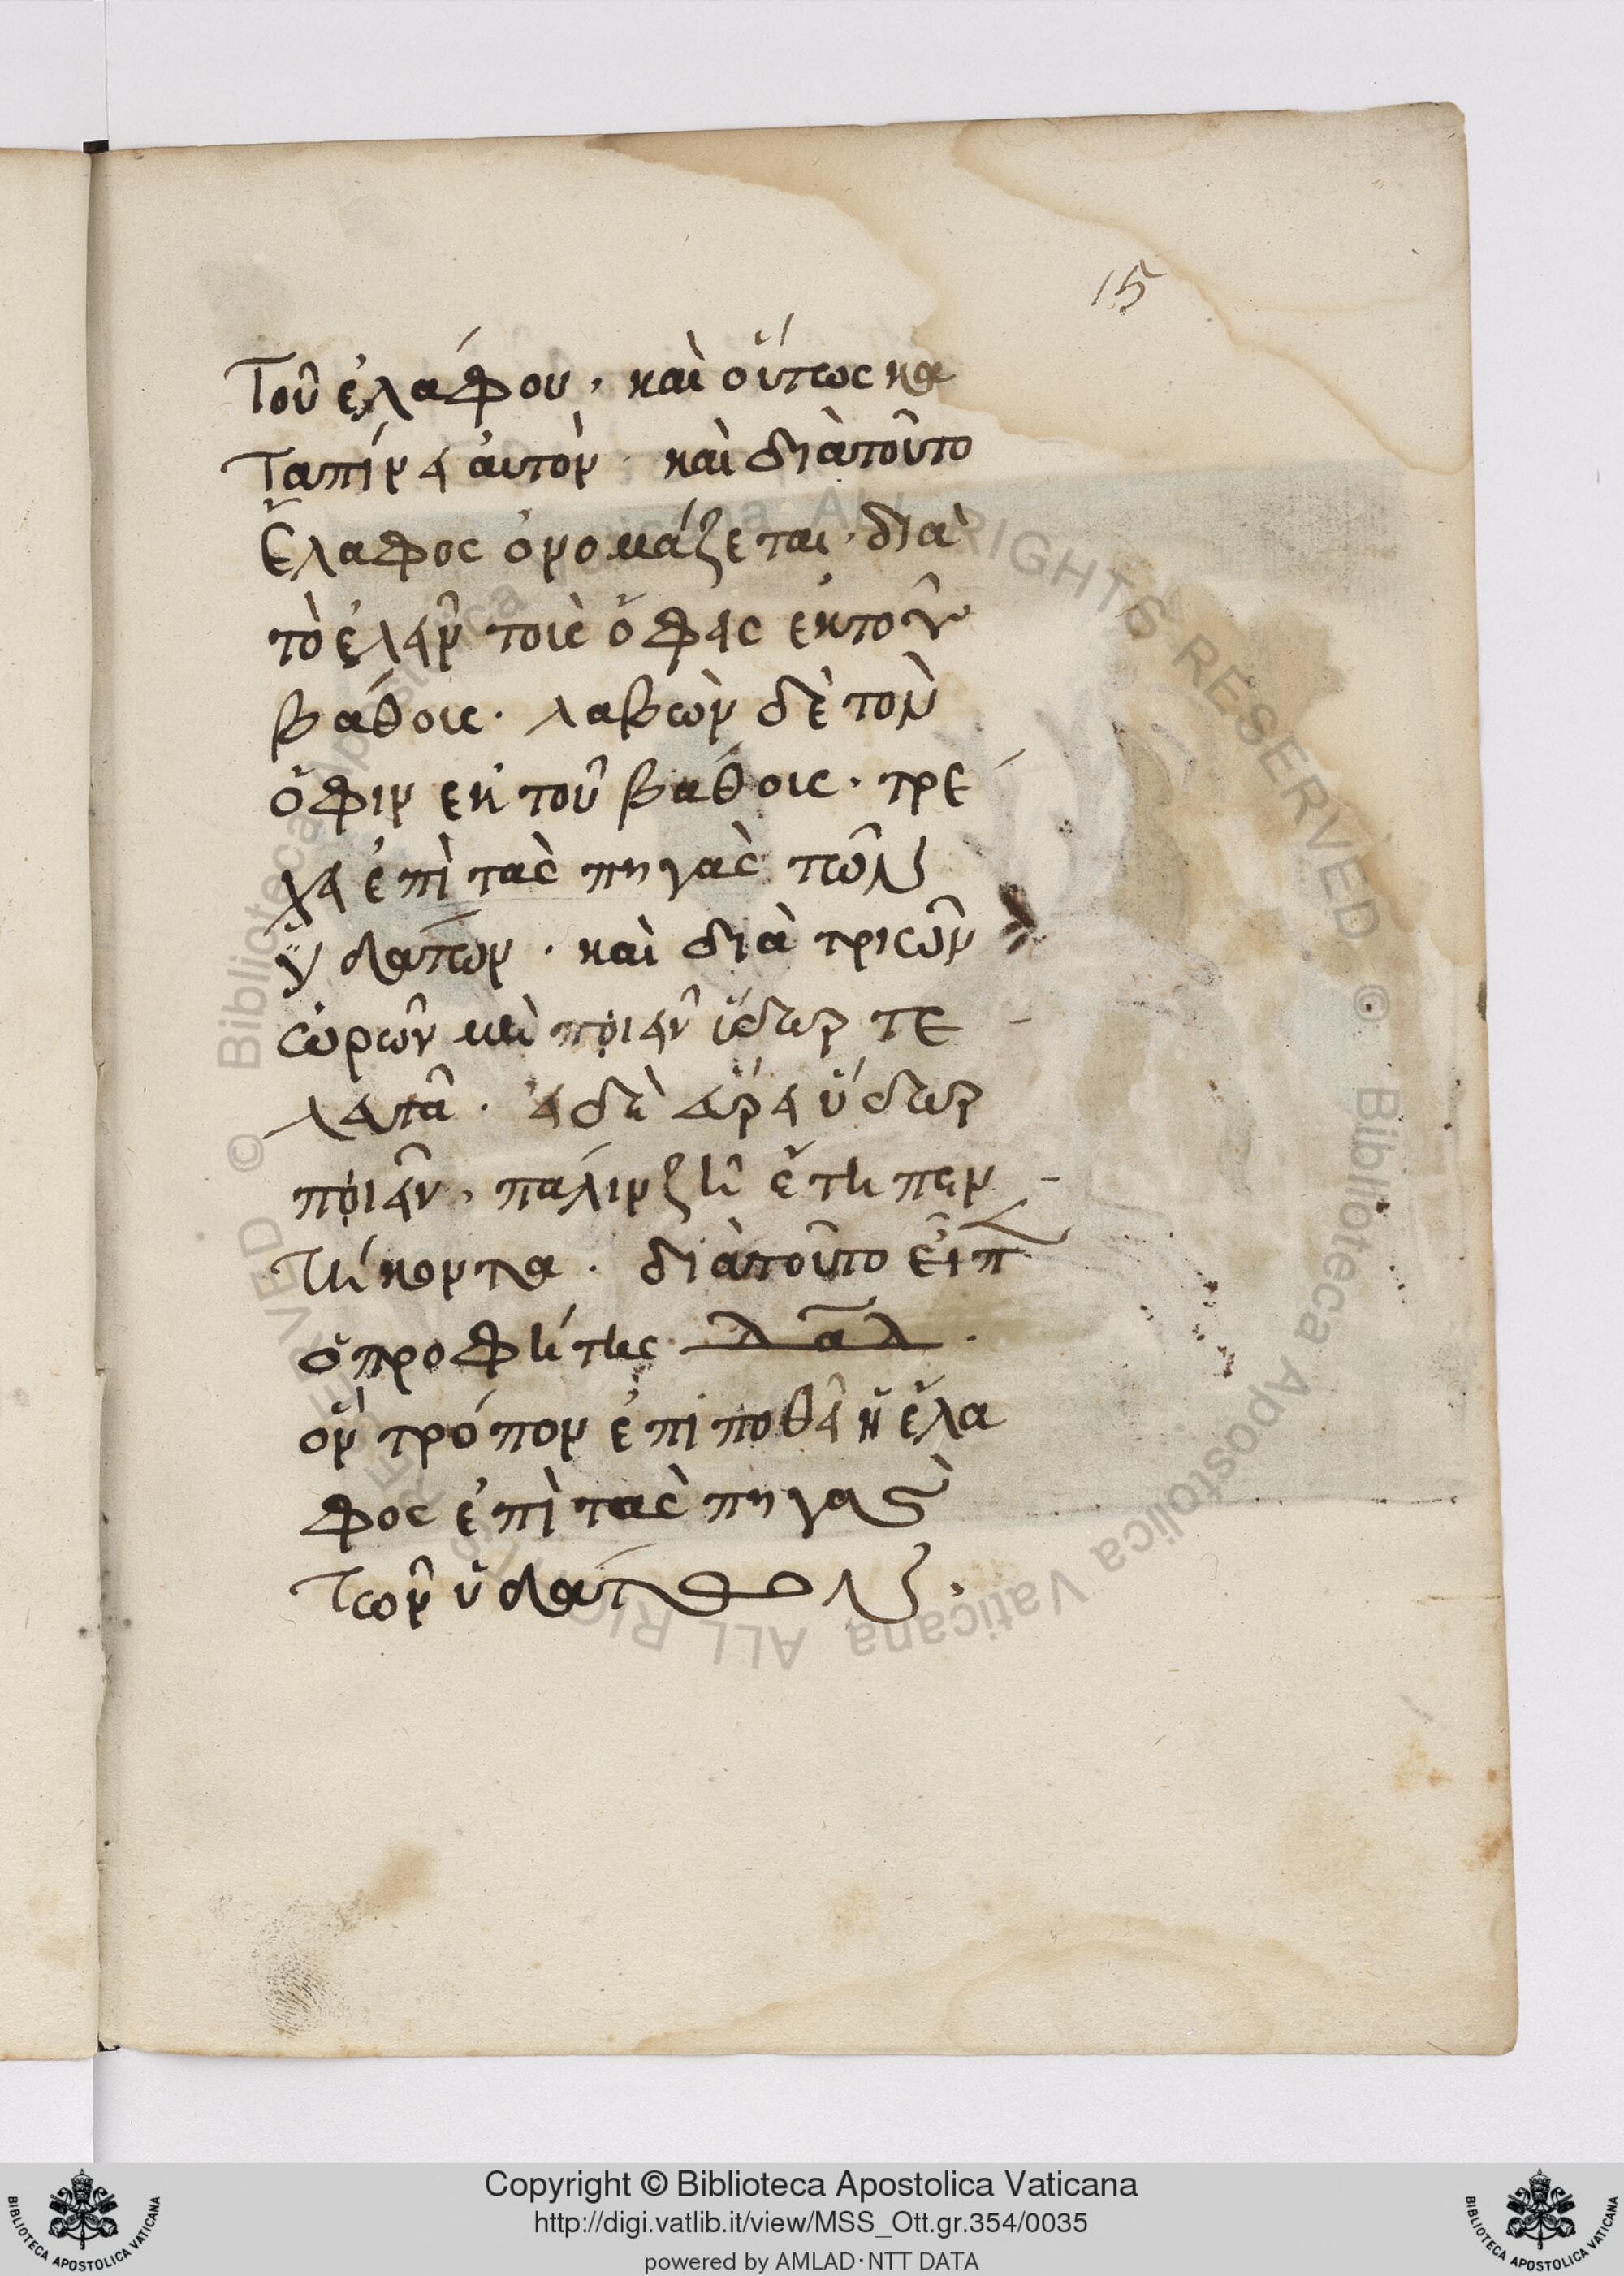 15
Τοῦ ἐλάφου · καὶ οὕτως κα
Ταπίνει αὐτὸν · καὶ διὰτοῦτο
Ἔλαφος ὀνομάζεται · διὰ
τὸ ἐλεῖν τοὺς ὄφεις ἐκτοῦ
βάθους · λαβὼν δὲ τὸν
ὄφιν ἐκ τοῦ βάθους · τρέ
χει ἐπὶ τὰς πηγὰς τῶν
ὑδάτων · καὶ διὰ τριῶν
ὡρῶν μὴ πιεῖν ὕδωρ τε
λευτᾶ · εἰ δὲ εὕρει ὕδωρ
πιεῖν · πάλιν ζῆ ἔτη πεν
Τήκοντα · διὰτοῦτο εἶπ
ὁ προφήτης δᾱδ ·
ὃν τρόπον ἐπιποθεῖ ἡ ἔλα
φος ἐπὶ τὰς πηγὰς
Τῶν ὑδάτων ·
Copyright © Biblioteca Apostolica Vaticana
http://digi.vatlib.it/view/MSS_Ott.gr.354/0035
powered by AMLAD·NTT DATA
BIBLIOTECA APOSTOLICA VATICANA
BIBLIOTECA APOSTOLICA VATICANA
© Biblioteca Apostolica Vaticana ALL RIGHTS RESERVED
© Biblioteca Apostolica Vaticana ALL RIGHTS RESERVED